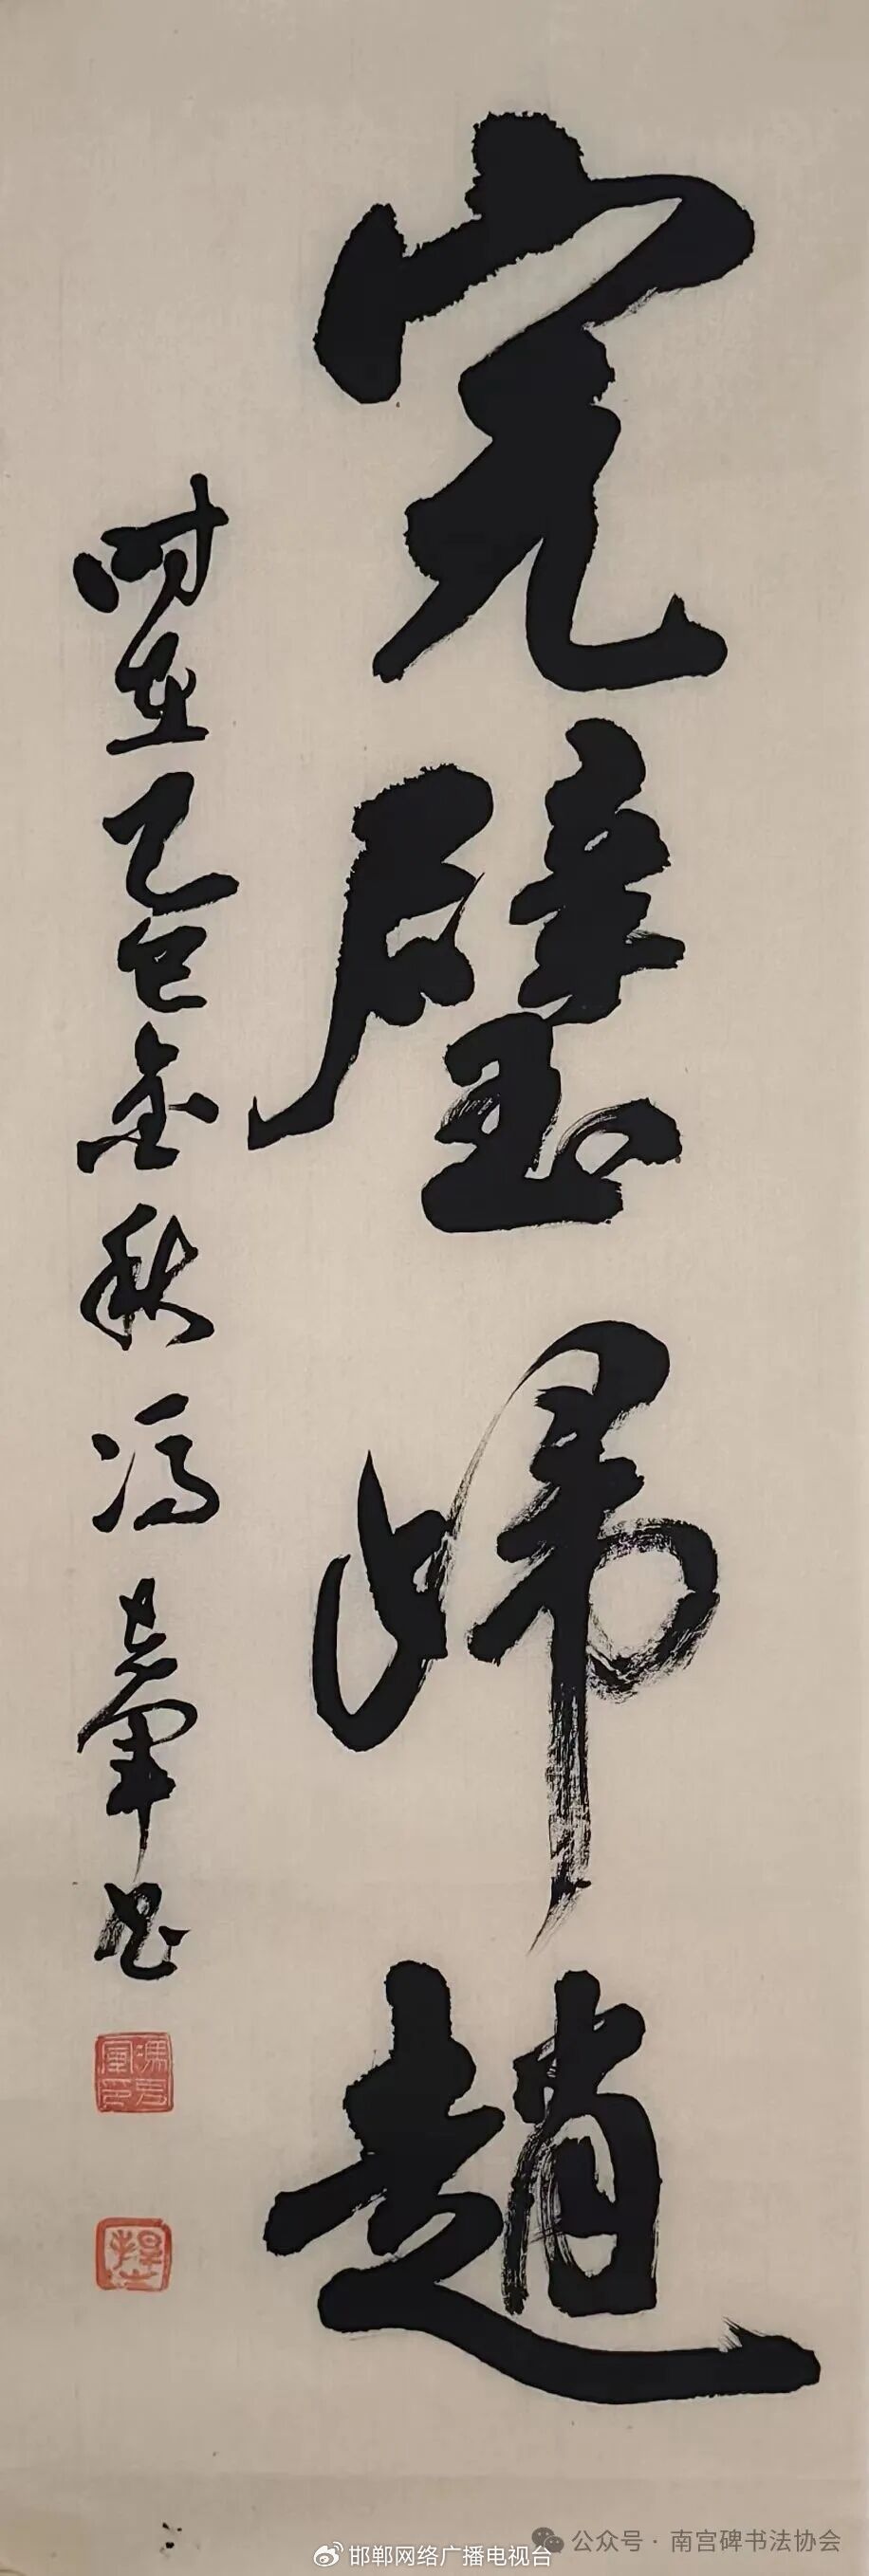 完璧歸趙
时在乙巳金秋冯
书
公众号·南宫碑书法协会
邯郸网络广播电视台